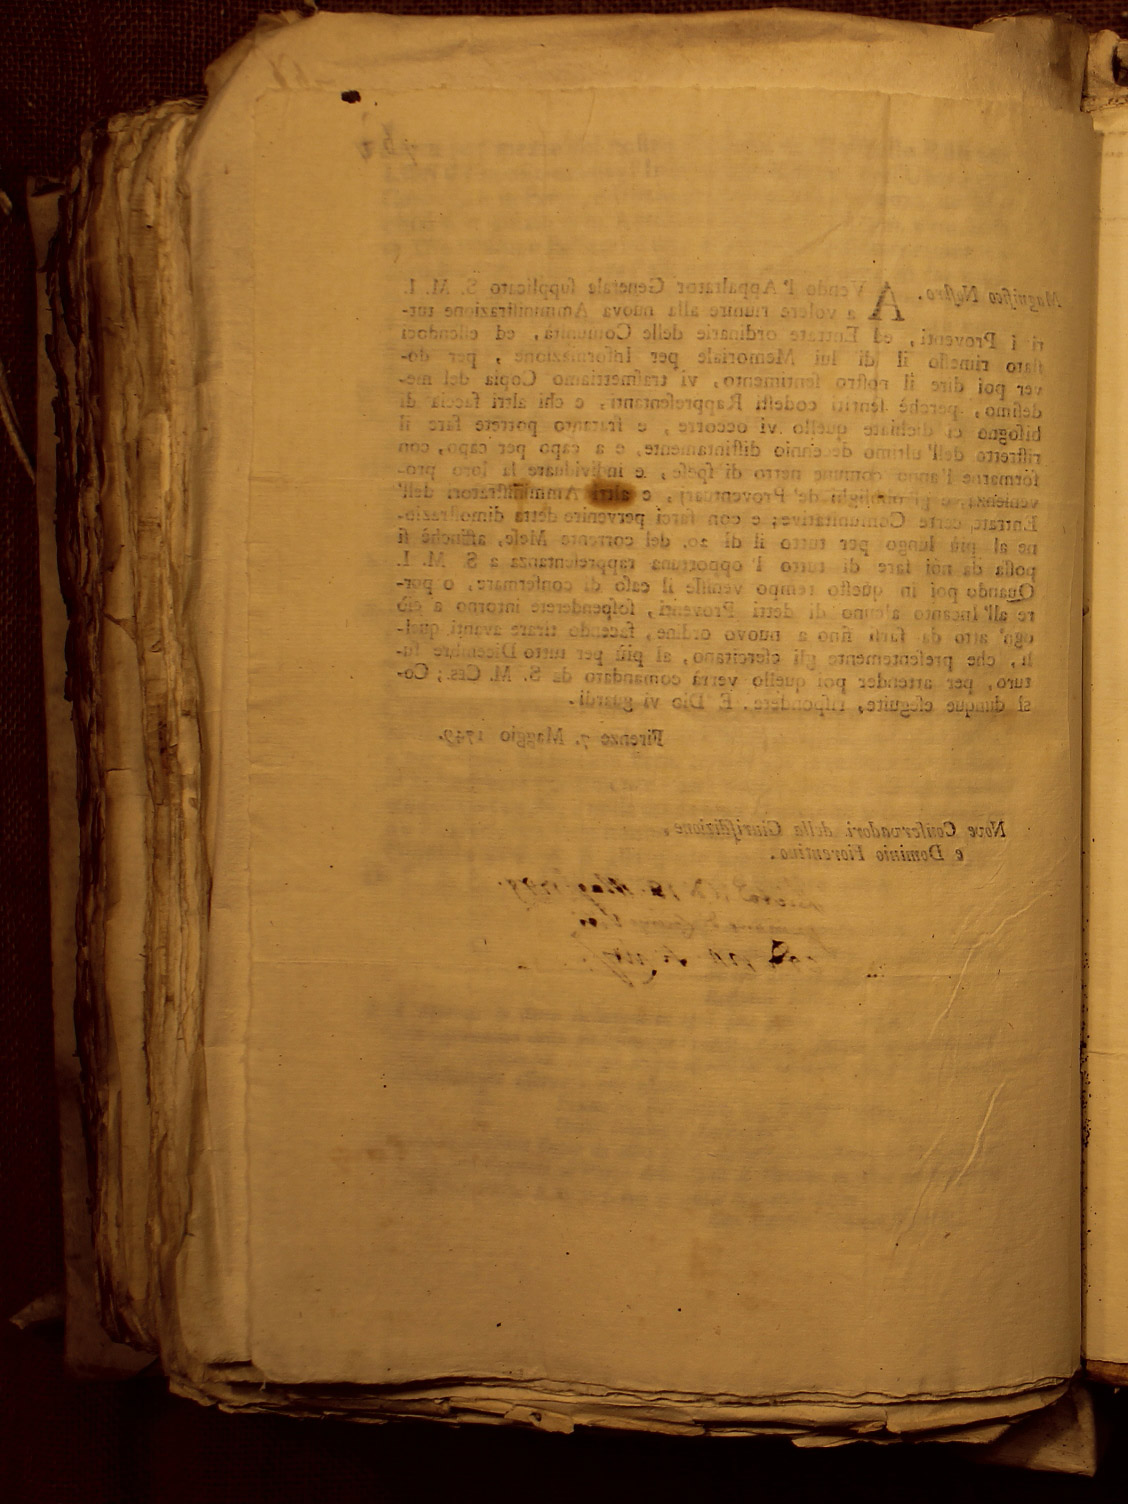 Magnifico Noſtro. AVendo l' Appaltator Generale ſupplicato S. M. I.
a volere riunire alla nuova Amminiſtrazione tut-
ti i Proventi, ed Entrate ordinarie delle Comunità, ed eſſendoci
ſtato rimeſſo il di lui Memoriale per Informazione, per do-
ver poi dire il noſtro ſentimento, vi traſmettiamo Copia del me-
deſimo, perchè ſentiti codeſti Rappreſentanti, e chi altri faccia di
biſogno ci dichiate quello vi occorre, e frattanto potrete fare il
riſtretto dell' ultimo decennio diſtintamente, e a capo per capo, con
formarne l' anno comune netto di ſpeſe, e individuare la loro pro-
venienza, e gl' obblighi de' Proventuarj, e altri Amminiſtratori dell'
Entrate certe Comunitative; e con farci pervenire detta dimoſtrazio-
ne al più lungo per tutto il dì 20. del corrente Meſe, affinchè ſi
poſſa da noi fare di tutto l' opportuna rappreſentanza a S. M. I.
Quando poi in queſto tempo veniſſe il caſo di confermare, o por-
re all' Incanto alcuno di detti Proventi, ſoſpenderete intorno a ciò
ogn' atto da farſi fino a nuovo ordine, facendo tirare avanti quel-
li, che preſentemente gli eſercitano, al più per tutto Dicembre fu-
turo, per attender poi quello verrà comandato da S. M. Ces.; Co-
sì dunque eſeguite, riſpondete. E Dio vi guardi.
Firenze 7. Maggio 1749.
Nove Conſervadori della Giuriſdizione,
e Dominio Fiorentino.